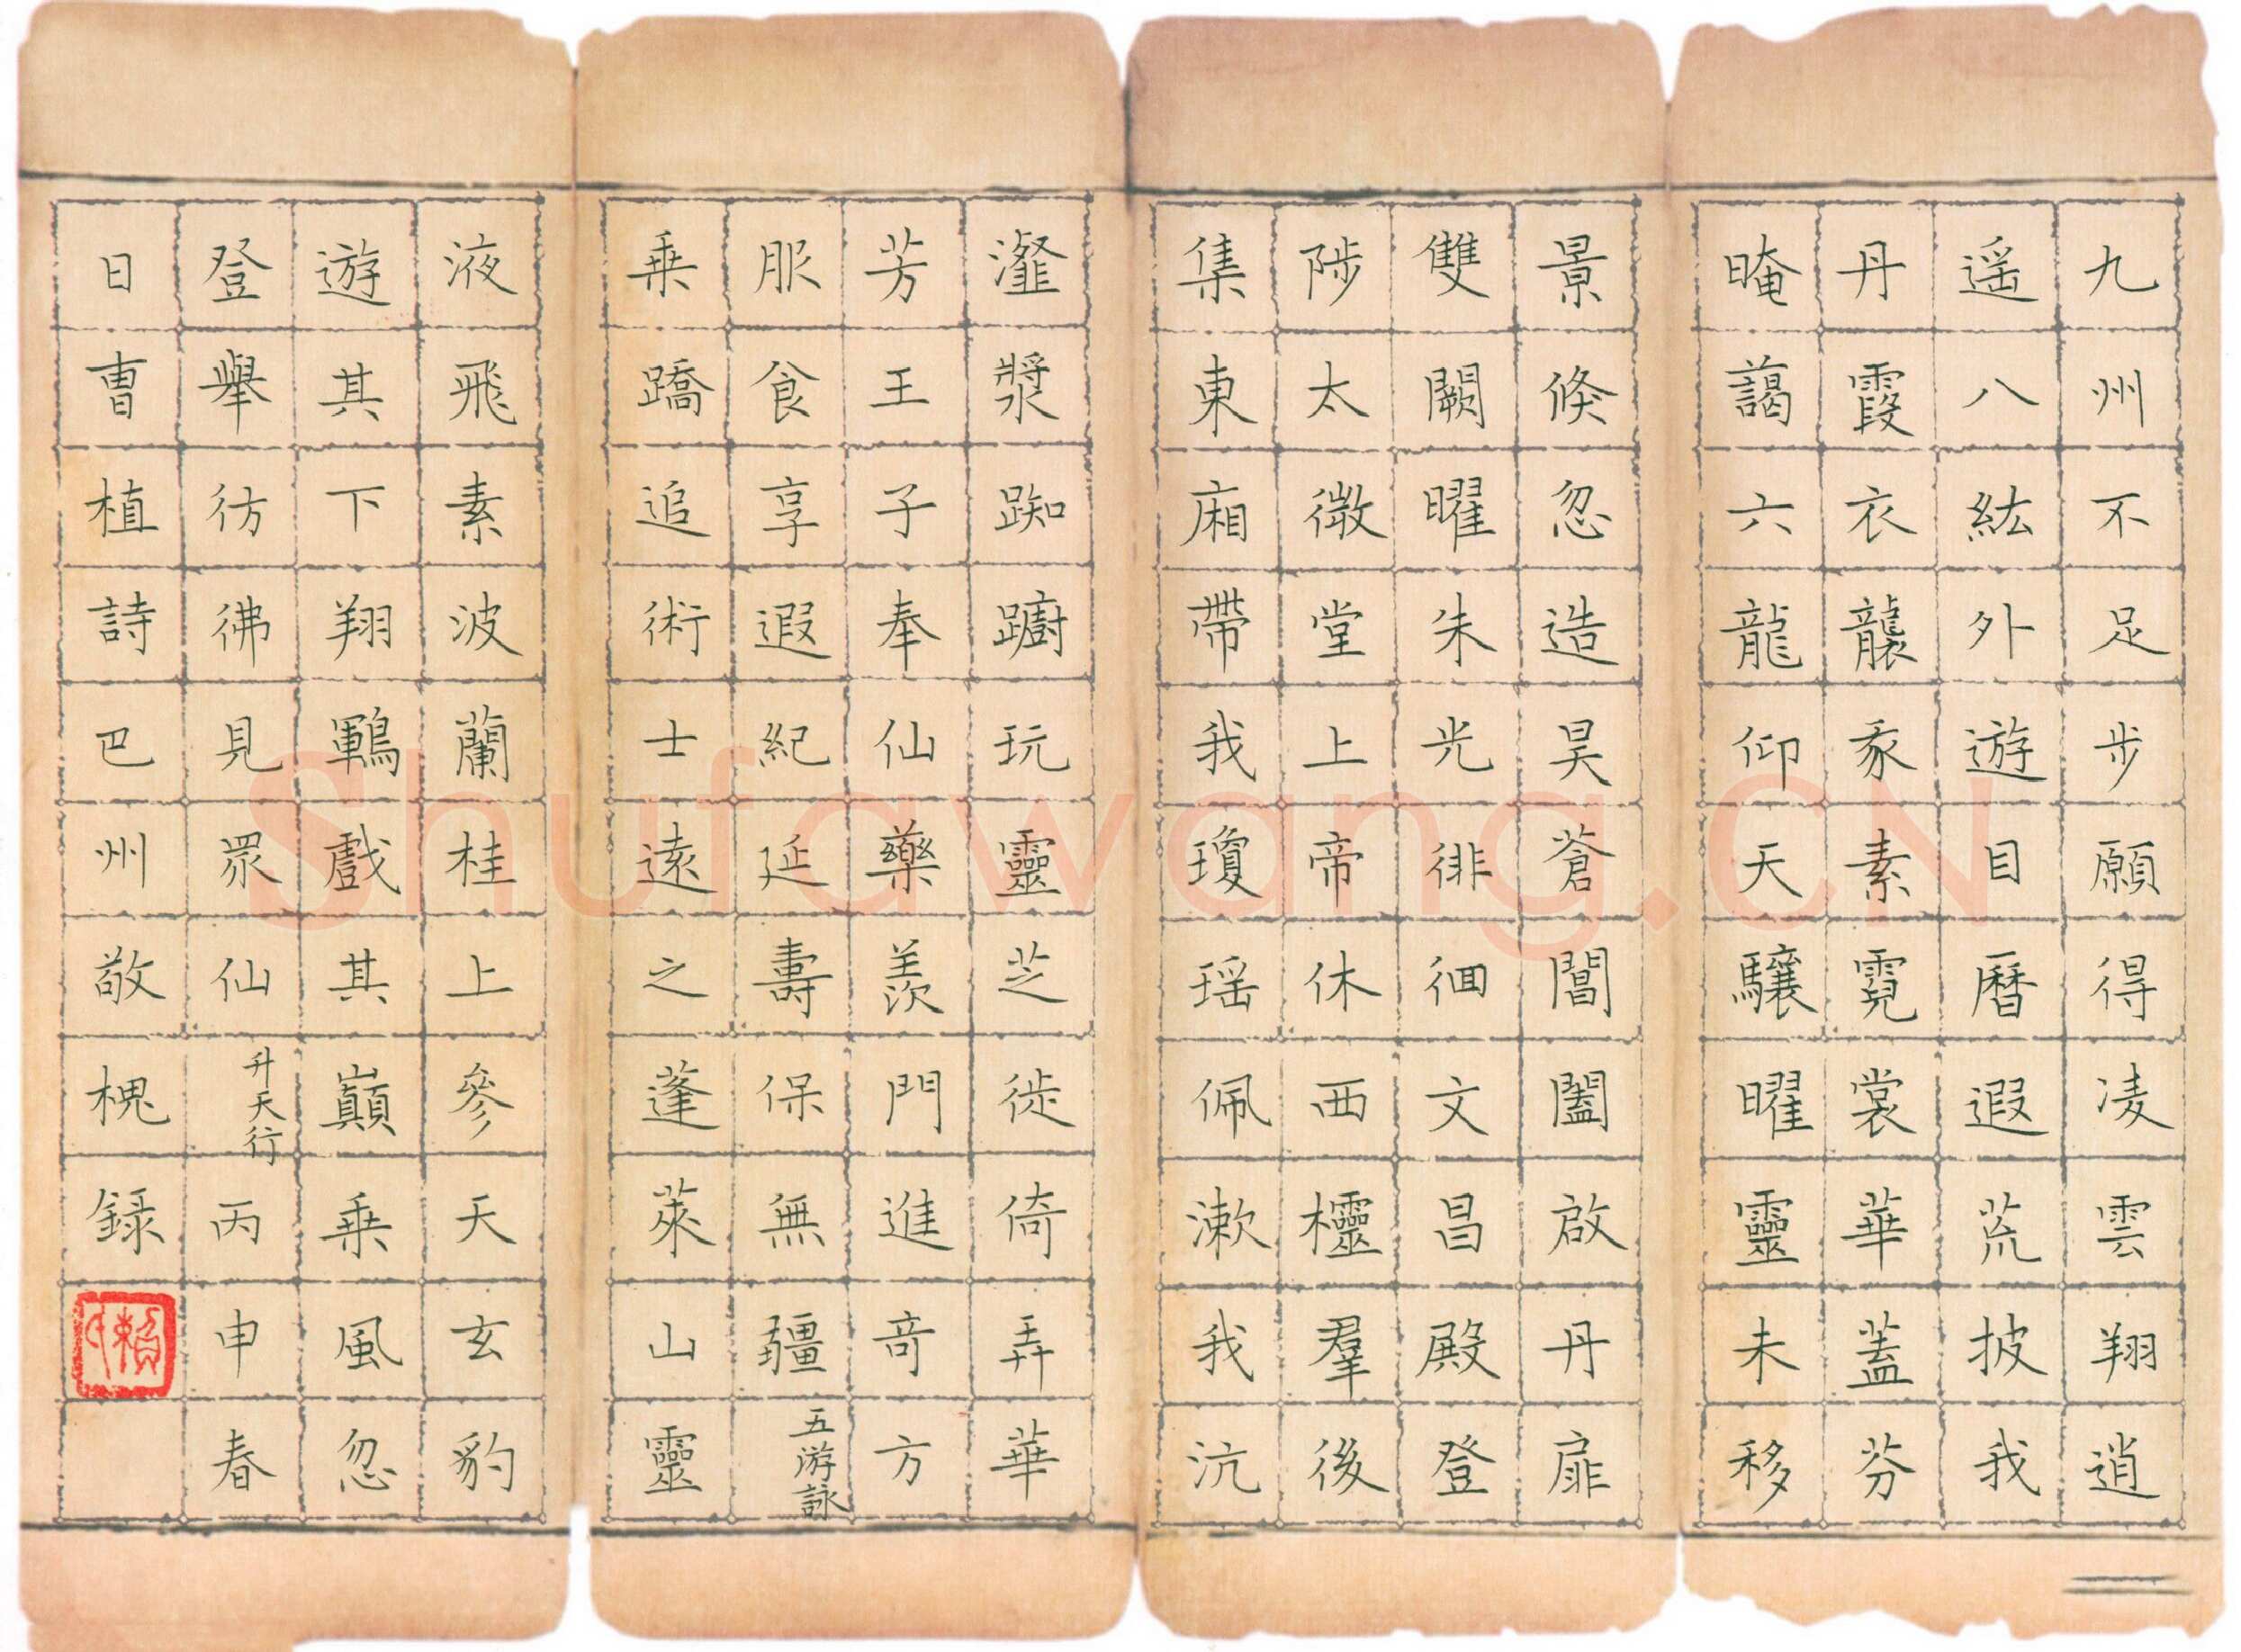 九州不足步願得凌雲翔逍
遥八紘外遊目曆遐荒披我
丹霞衣襲素霓裳華蓋芬
晻藹六龍仰天驤曜靈未移
景倏忽造昊蒼閶闔啟丹扉
雙闕曜朱光徘徊文昌殿登
陟太微堂上帝休西櫺羣後
集東廂帶我瓊瑶佩漱我沆
瀣漿踟躕玩靈芝徙倚弄華
芳王子奉仙藥羡門進奇方
服食享遐紀延壽保無疆 五游詠
乗蹻追術士遠之蓬萊山靈
液飛素波蘭桂上參天玄豹
遊其下翔鶤戲其巔乗風忽
登舉彷彿見眾仙 升天行 丙申春
日曹植詩巴州敬槐録
Shufawang.CN